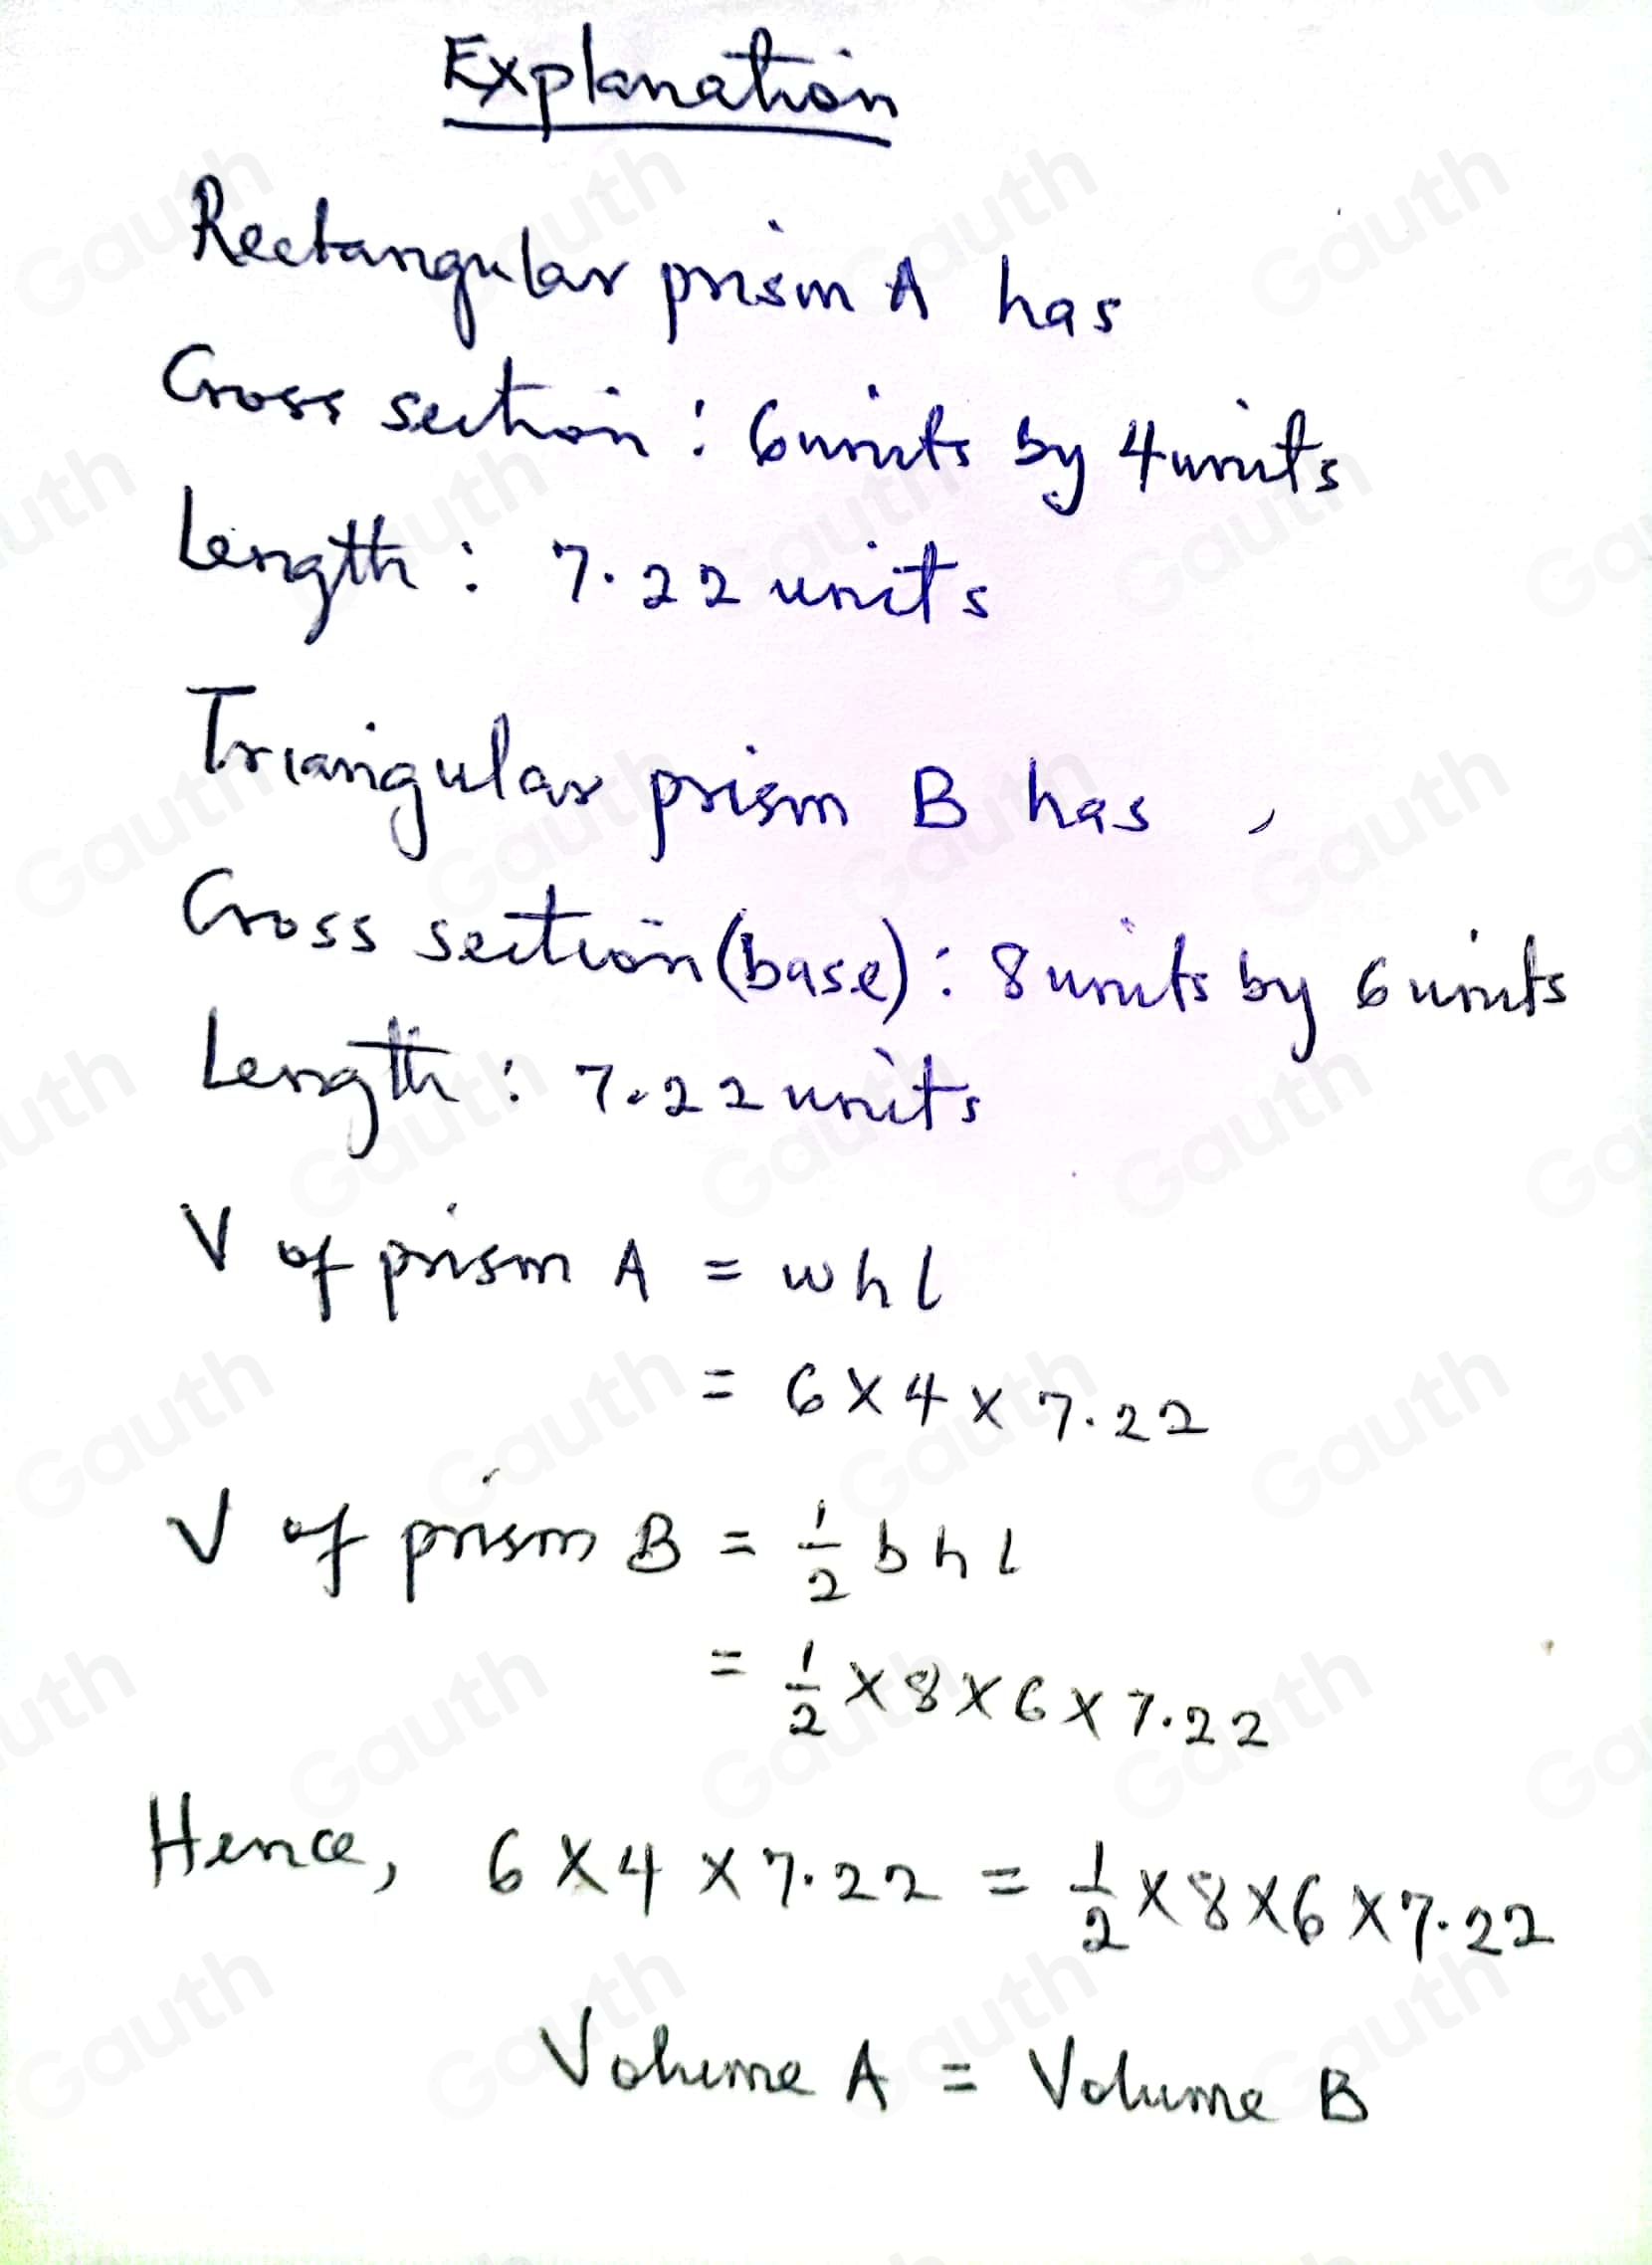 Explanation
Rectangular prism A has
Cross section : 6units by 4units
Length : 7.22 units
Triangular prism B has ,
Cross section (base) : 8 units by 6 units
Length : 7.22 units
V of prism A = w h l
= 6 × 4 × 7.22
V of prism B = 1/2 b h l
= 1/2 × 8 × 6 × 7.22
Hence, 6 × 4 × 7.22 = 1/2 × 8 × 6 × 7.22
Volume A = Volume B
Gauth